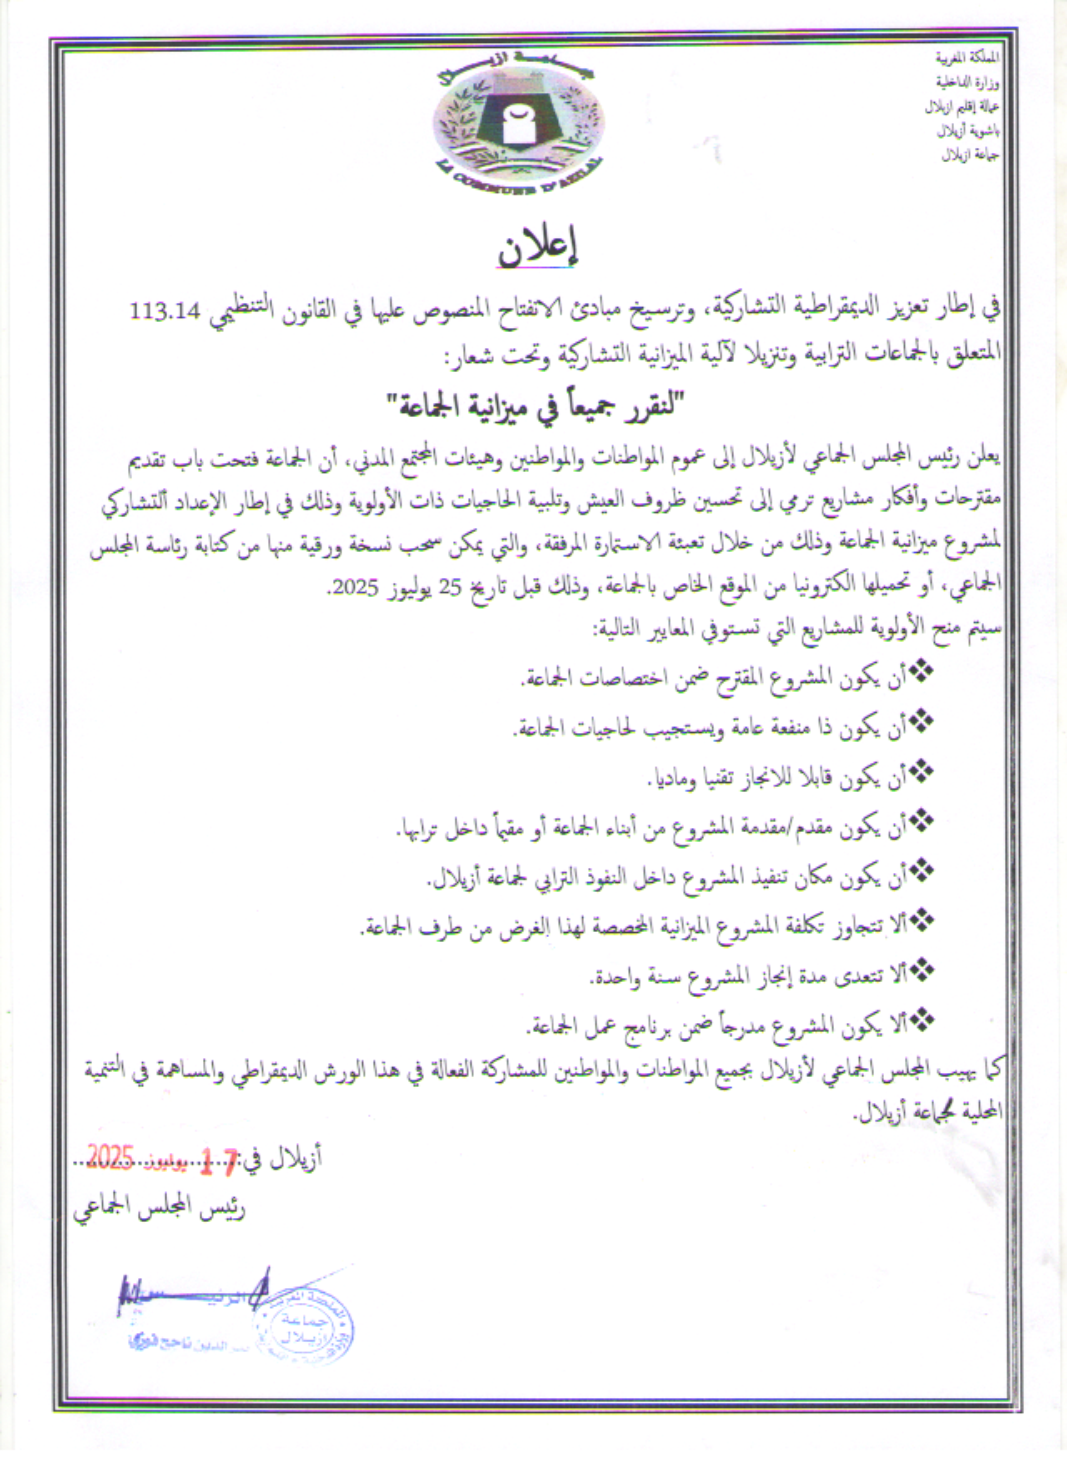 المملكة المغربية
وزارة الداخلية
عمالة إقليم ازيلال
باشوية أزيلال
جماعة ازيلال
جماعة ازيلال
LA COMMUNE D'AZILAL
إعلان
في إطار تعزيز الديمقراطية التشاركية، وترسيخ مبادئ الانفتاح المنصوص عليها في القانون التنظيمي 113.14
المتعلق بالجماعات الترابية وتنزيلا لآلية الميزانية التشاركية وتحت شعار:
"لنقرر جميعاً في ميزانية الجماعة"
يعلن رئيس المجلس الجماعي لأزيلال إلى عموم المواطنات والمواطنين وهيئات المجتمع المدني، أن الجماعة فتحت باب تقديم
مقترحات وأفكار مشاريع ترمي إلى تحسين ظروف العيش وتلبية الحاجيات ذات الأولوية وذلك في إطار الإعداد التشاركي
لمشروع ميزانية الجماعة وذلك من خلال تعبئة الاستمارة المرفقة، والتي يمكن سحب نسخة ورقية منها من كتابة رئاسة المجلس
الجماعي، أو تحميلها الكترونيا من الموقع الخاص بالجماعة، وذلك قبل تاريخ 25 يوليوز 2025.
سيتم منح الأولوية للمشاريع التي تستوفي المعايير التالية:
❖أن يكون المشروع المقترح ضمن اختصاصات الجماعة.
❖أن يكون ذا منفعة عامة ويستجيب لحاجيات الجماعة.
❖أن يكون قابلا للانجاز تقنيا وماديا.
❖أن يكون مقدم/مقدمة المشروع من أبناء الجماعة أو مقيماً داخل ترابها.
❖أن يكون مكان تنفيذ المشروع داخل النفوذ الترابي لجماعة أزيلال.
❖ألا تتجاوز تكلفة المشروع الميزانية المخصصة لهذا الغرض من طرف الجماعة.
❖ألا تتعدى مدة إنجاز المشروع سنة واحدة.
❖ألا يكون المشروع مدرجاً ضمن برنامج عمل الجماعة.
كما يهيب المجلس الجماعي لأزيلال بجميع المواطنات والمواطنين للمشاركة الفعالة في هذا الورش الديمقراطي والمساهمة في التنمية
المحلية لجماعة أزيلال.
أزيلال في: 17 يوليوز 2025
رئيس المجلس الجماعي
الرئيس
المملكة المغربية
جماعة
ازيلال